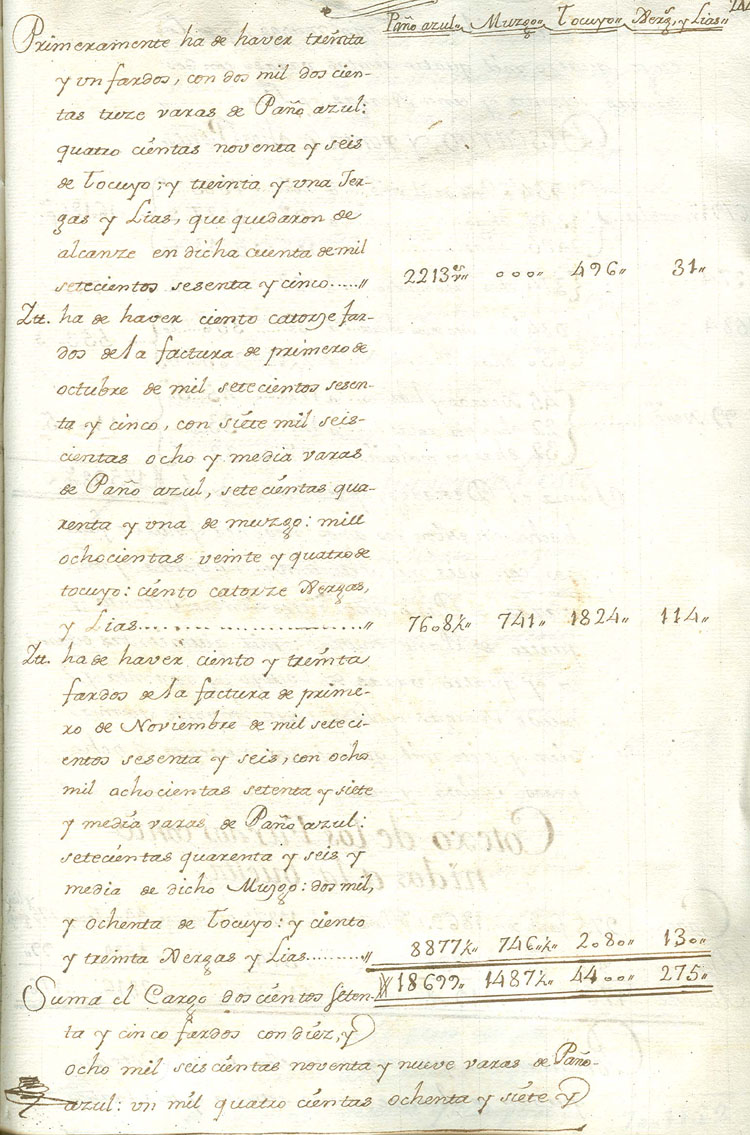 Paño azul„ Muzgo„ Tocuyo„ Xerg.s y Lias„
Primeramente ha de haver treinta
y un fardos, con dos mil dos cien-
tas treze varas de Paño azul:
quatro cientas noventa y seis
de Tocuyo; y treinta y una Jer-
gas y Lias, que quedaron de
alcanze en dicha cuenta de mil
setecientos sesenta y cinco.....„ 2213 v.s„ 000„ 496„ 31„
Itt. ha de haver ciento catorze far-
dos de la factura de primero de
octubre de mil setecientos sesen-
ta y cinco, con siete mil seis-
cientas ocho y media varas
de Paño azul, setecientas qua-
renta y una de muzgo: mill
ochocientas veinte y quatro de
tocuyo: ciento catorze Xergas,
y Lias..............................„ 7608½„ 741„ 1824„ 114„
Itt. ha de haver ciento y treinta
fardos de la factura de prime-
ro de Noviembre de mil seteci-
entos sesenta y seis, con ocho
mil ochocientas setenta y siete
y media varas de Paño azul:
setecientas quarenta y seis y
media de dicho Muzgo: dos mil,
y ochenta de Tocuyo: y ciento
y treinta Xergas y Lias..........„ 8877½„ 746½„ 2080„ 130„
Suma el Cargo dos cientos seten- 18699„ 1487½„ 4400„ 275„
ta y cinco fardos con diez, y
ocho mil seiscientas noventa y nueve varas de Paño
azul: un mil quatro cientas ochenta y siete y